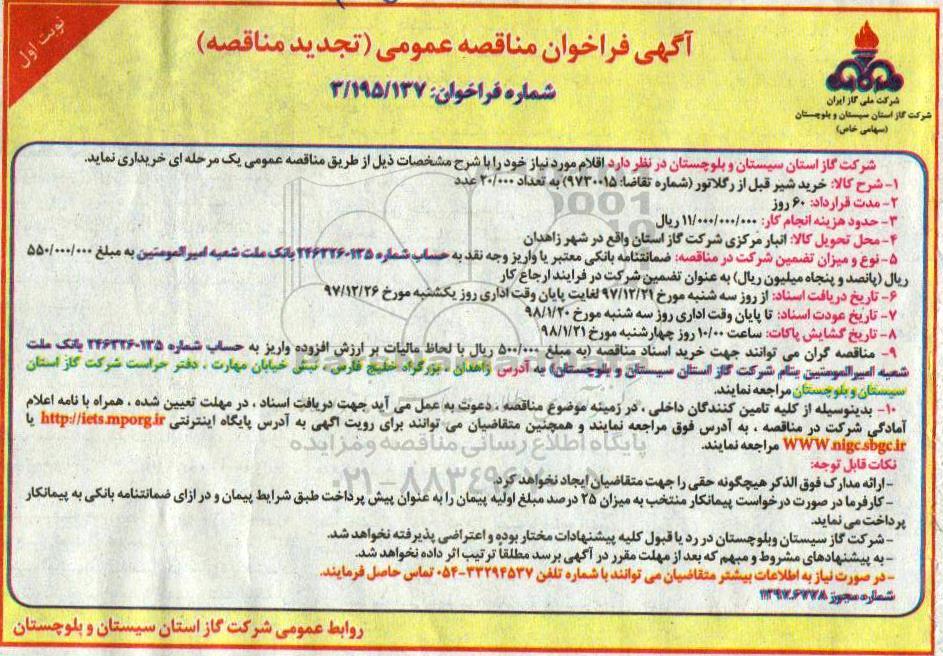 نوبت اول
آگهی فراخوان مناقصه عمومی (تجدید مناقصه)
شماره فراخوان: ۳/۱۹۵/۱۳۷
شرکت ملی گاز ایران
شرکت گاز استان سیستان و بلوچستان
(سهامی خاص)
شرکت گاز استان سیستان و بلوچستان در نظر دارد اقلام مورد نیاز خود را با شرح مشخصات ذیل از طریق مناقصه عمومی یک مرحله ای خریداری نماید.
۱- شرح کالا: خرید شیر قبل از رگلاتور (شماره تقاضا: ۹۷۳۰۰۱۵) به تعداد ۲۰/۰۰۰ عدد
۲- مدت قرارداد: ۶۰ روز
۳- حدود هزینه انجام کار: ۱۱/۰۰۰/۰۰۰/۰۰۰ ریال
۴- محل تحویل کالا: انبار مرکزی شرکت گاز استان واقع در شهر زاهدان
۵- نوع و میزان تضمین شرکت در مناقصه: ضمانتنامه بانکی معتبر یا واریز وجه نقد به حساب شماره ۲۴۶۳۲۶۰۱۳۵ بانک ملت شعبه امیرالمومنین به مبلغ ۵۵۰/۰۰۰/۰۰۰
ریال (پانصد و پنجاه میلیون ریال) به عنوان تضمین شرکت در فرایند ارجاع کار
۶- تاریخ دریافت اسناد: از روز سه شنبه مورخ ۹۷/۱۲/۲۱ لغایت پایان وقت اداری روز یکشنبه مورخ ۹۷/۱۲/۲۶
۷- تاریخ عودت اسناد: تا پایان وقت اداری روز سه شنبه مورخ ۹۸/۱/۲۰
۸- تاریخ گشایش پاکات: ساعت ۱۰/۰۰ روز چهارشنبه مورخ ۹۸/۱/۲۱
۹- مناقصه گران می توانند جهت خرید اسناد مناقصه (به مبلغ ۵۰۰/۰۰۰ ریال با لحاظ مالیات بر ارزش افزوده واریز به حساب شماره ۲۴۶۳۲۶۰۱۳۵ بانک ملت
شعبه امیرالمومنین بنام شرکت گاز استان سیستان و بلوچستان) به آدرس زاهدان ، بزرگراه خلیج فارس ، نبش خیابان مهارت ، دفتر حراست شرکت گاز استان
سیستان و بلوچستان مراجعه نمایند.
۱۰- بدینوسیله از کلیه تامین کنندگان داخلی ، در زمینه موضوع مناقصه ، دعوت به عمل می آید جهت دریافت اسناد ، در مهلت تعیین شده ، همراه با نامه اعلام
آمادگی شرکت در مناقصه ، به آدرس فوق مراجعه نمایند و همچنین متقاضیان می توانند برای رویت آگهی به آدرس پایگاه اینترنتی http://iets.mporg.ir یا
WWW.nigc.sbgc.ir مراجعه نمایند.
نکات قابل توجه:
- ارائه مدارک فوق الذکر هیچگونه حقی را جهت متقاضیان ایجاد نخواهد کرد.
- کارفرما در صورت درخواست پیمانکار منتخب به میزان ۲۵ درصد مبلغ اولیه پیمان را به عنوان پیش پرداخت طبق شرایط پیمان و در ازای ضمانتنامه بانکی به پیمانکار
پرداخت می نماید.
- شرکت گاز سیستان وبلوچستان در رد یا قبول کلیه پیشنهادات مختار بوده و اعتراضی پذیرفته نخواهد شد.
- به پیشنهادهای مشروط و مبهم که بعد از مهلت مقرر در آگهی برسد مطلقا ترتیب اثر داده نخواهد شد.
- در صورت نیاز به اطلاعات بیشتر متقاضیان می توانند با شماره تلفن ۳۳۲۹۴۵۳۷-۰۵۴ تماس حاصل فرمایند.
شماره مجوز ۱۳۹۷.۶۷۷۸
روابط عمومی شرکت گاز استان سیستان و بلوچستان
پایگاه اطلاع رسانی مناقصه و مزایده